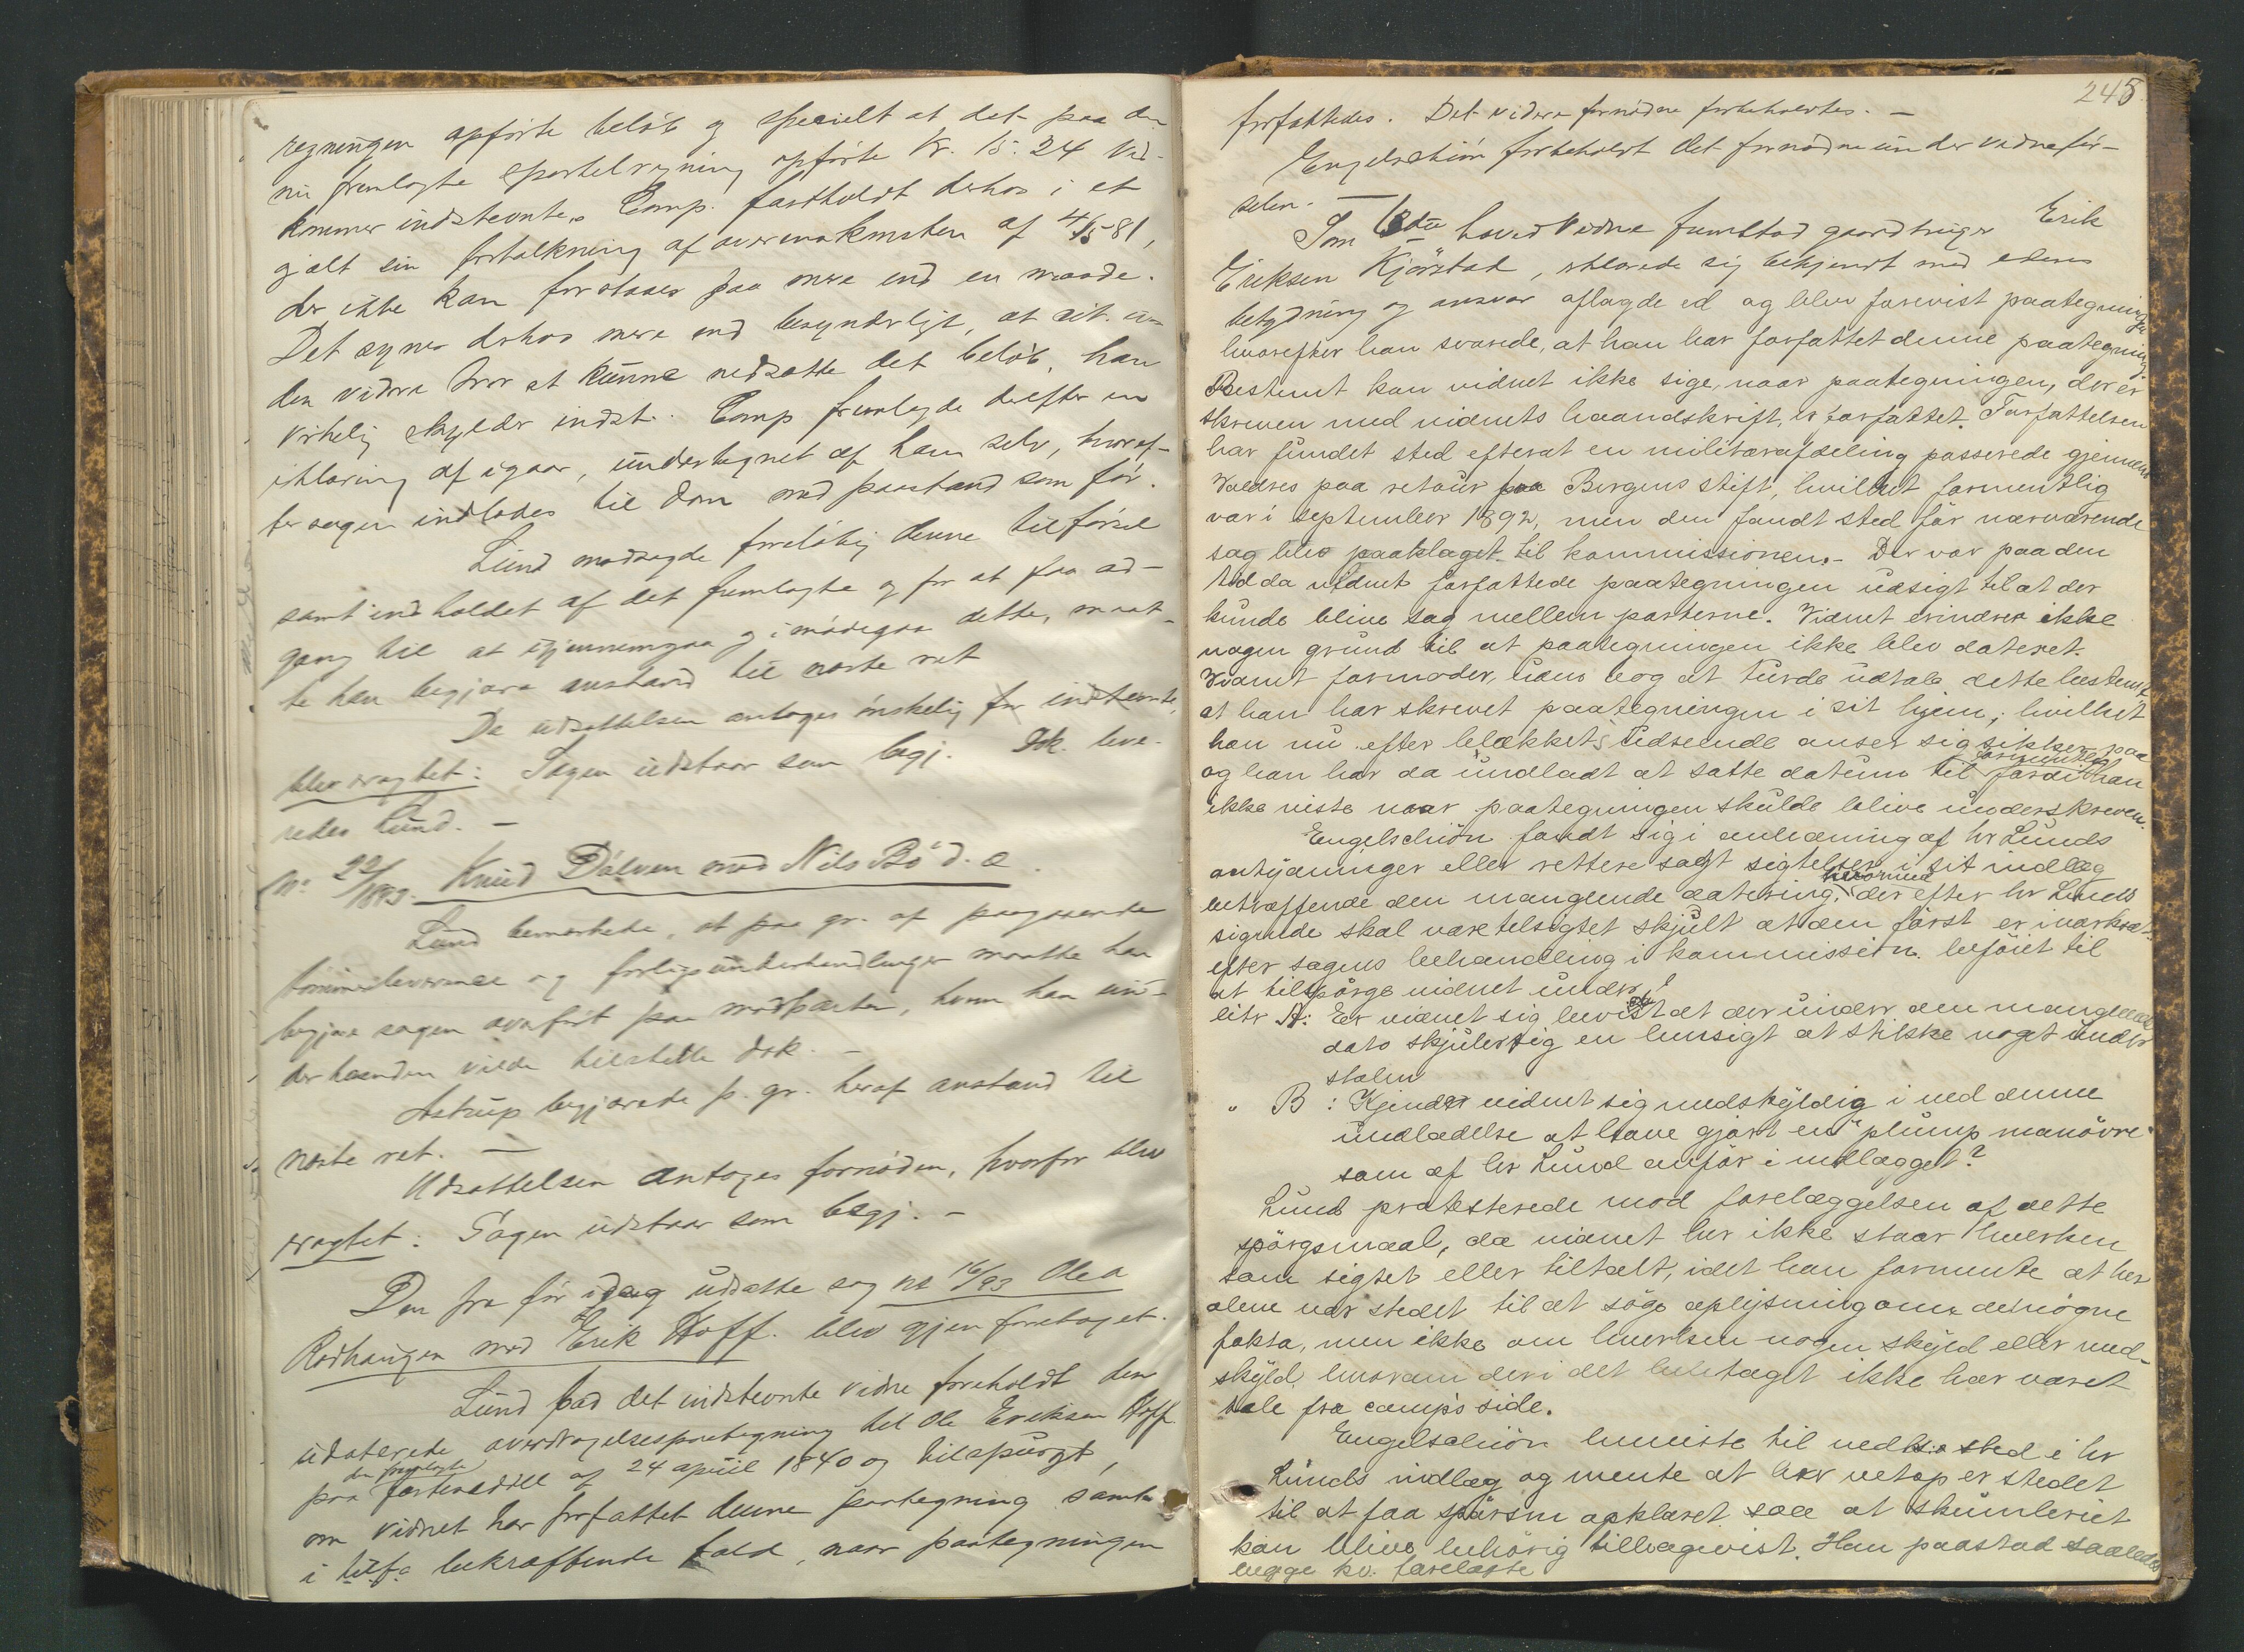 regningen opförte belöb og specielt at det paa den
nu fremlagte sportelregning opförte Kr. 15.24 ved-
kommer indstevnte. Comp. fastholdt derhos i et
og alt sin fortolkning af overenskomsten af 4/5 81,
der ikke kan forstaaes paa mere end en maade.
Det synes derhos mere end besynderligt, at cit. u-
den videre tror at kunne nedsætte det belöb, han
virkelig skylder indst. Comp. fremlagde derefter en
erklæring af igaar, undertegnet af ham selv, hvoref-
ter sagen indlodes til dom med paastand som för.
Lund modsagde foreløbig denne tilförsel
samt indholdet af det fremlagte og for at faa ad-
gang til at igjennemgaa og imödegaa dette, maat-
te han begjære anstand til næste ret
Da udsættelsen antages önskelig for indstevnte,
blev eragtet: Sagen udstaar som begj. Dok. leve-
redes Lund. —
No 22/1893. Knud Dölven mod Nils Bö d. æ.
Lund bemærkede, at paa gr. af paagaaende
og forligsunderhandlinger maatte han
begjære sagen overfört paa modparten, hvem han un-
der haanden vilde tilstille dok. —
Astrup begjærede p. gr. heraf anstand til
næste ret. —
Udsættelsen antages fornöden, hvorfor blev
eragtet: Sagen udstaar som begj. —
Den fra för idag udsatte sag No 16/93 Ole
Rødhaugen mod Erik Hoff. blev igjen foretaget.
Lund bad det indstevnte vidne foreholdt den
udaterede overdragelsespaategning til Ole Eriksen Hoff
paa den fremlagte fæsteseddel af 24 april 1840 og tilspurgt,
om vidnet har forfattet denne paategning samt
i tilf. bekræftende fald, naar paategningen
245
forfattedes. Det videre fornödne forbeholdtes. —
Engelschiön forbeholdt det fornödne under vidneför-
selen. —
Som 13de hoved Vidne fremstod gaardbruger Erik
Eriksen Kjörstad, erklærede sig bekjendt med edens
betydning og ansvar aflagde ed og blev forevist paategningen
hvorefter han svarede, at han har forfattet denne paategning.
Bestemt kan vidnet ikke sige, naar paategningen, der er
skreven med vidnets haandskrift, er forfattet. Forfattelsen
har fundet sted efterat en militærafdeling passerede gjennem
Valdres paa retour fra Bergens stift, hvilket formentlig
var i september 1892, men den fandt sted för nærværende
sag blev paaklaget til kommissionen. - Der var paa den
tid da vidnet forfattede paategningen udsigt til at der
kunde blive sag mellem parterne. Vidnet erindrer ikke
nogen grund til at paategningen ikke blev dateret.
Vidnet formoder, uden dog at turde udtale dette bestemt,
at han har skrevet paategningen i sit hjem, hvilket
han nu efter blækkets udseende anser sig sikker paa
og han har da undladt at sætte datum til formentlig fordi han
ikke viste naar paategningen skulde blive underskreven.
Engelschiön fandt sig i anledning af hr Lunds
antydninger eller rettere sagt sigtelser i sit indlæg
betræffende den manglende datering, hvormed der efter hr Lunds
sigende skal være tilsigtet skjult at den först er iværksat
efter sagens behandling i kommission. beföiet til
at tilspörge vidnet under
litr A: Er vidnet sig bevidst at der under den manglende
dato skjuler sig en hensigt at stikke noget under
stolen
" B: Kjender vidnet sig medskyldig i ved denne
undladelse at have gjort en "plump manövre"
som af hr Lund anfört i indlægget?
Lund protesterede mod forelæggelsen af dette
spörgsmaal, da vidnet her ikke staar hverken
som sigtet eller tiltalt, idet han formente at her
alene var stedet til at söge oplysning om de nögne
fakta, men ikke om hverken nogen skyld eller med-
skyld, hvorom der i det heletaget ikke har været
tale fra comp's side.
Engelschiön henviste til vedk. sted i hr
Lunds indlæg og mente at her netop er stedet
til at faa spörsm opklaret saa at skumleriet
kan blive behörig tilbagevist. Han paastod saaledes
begge kv. forelagte